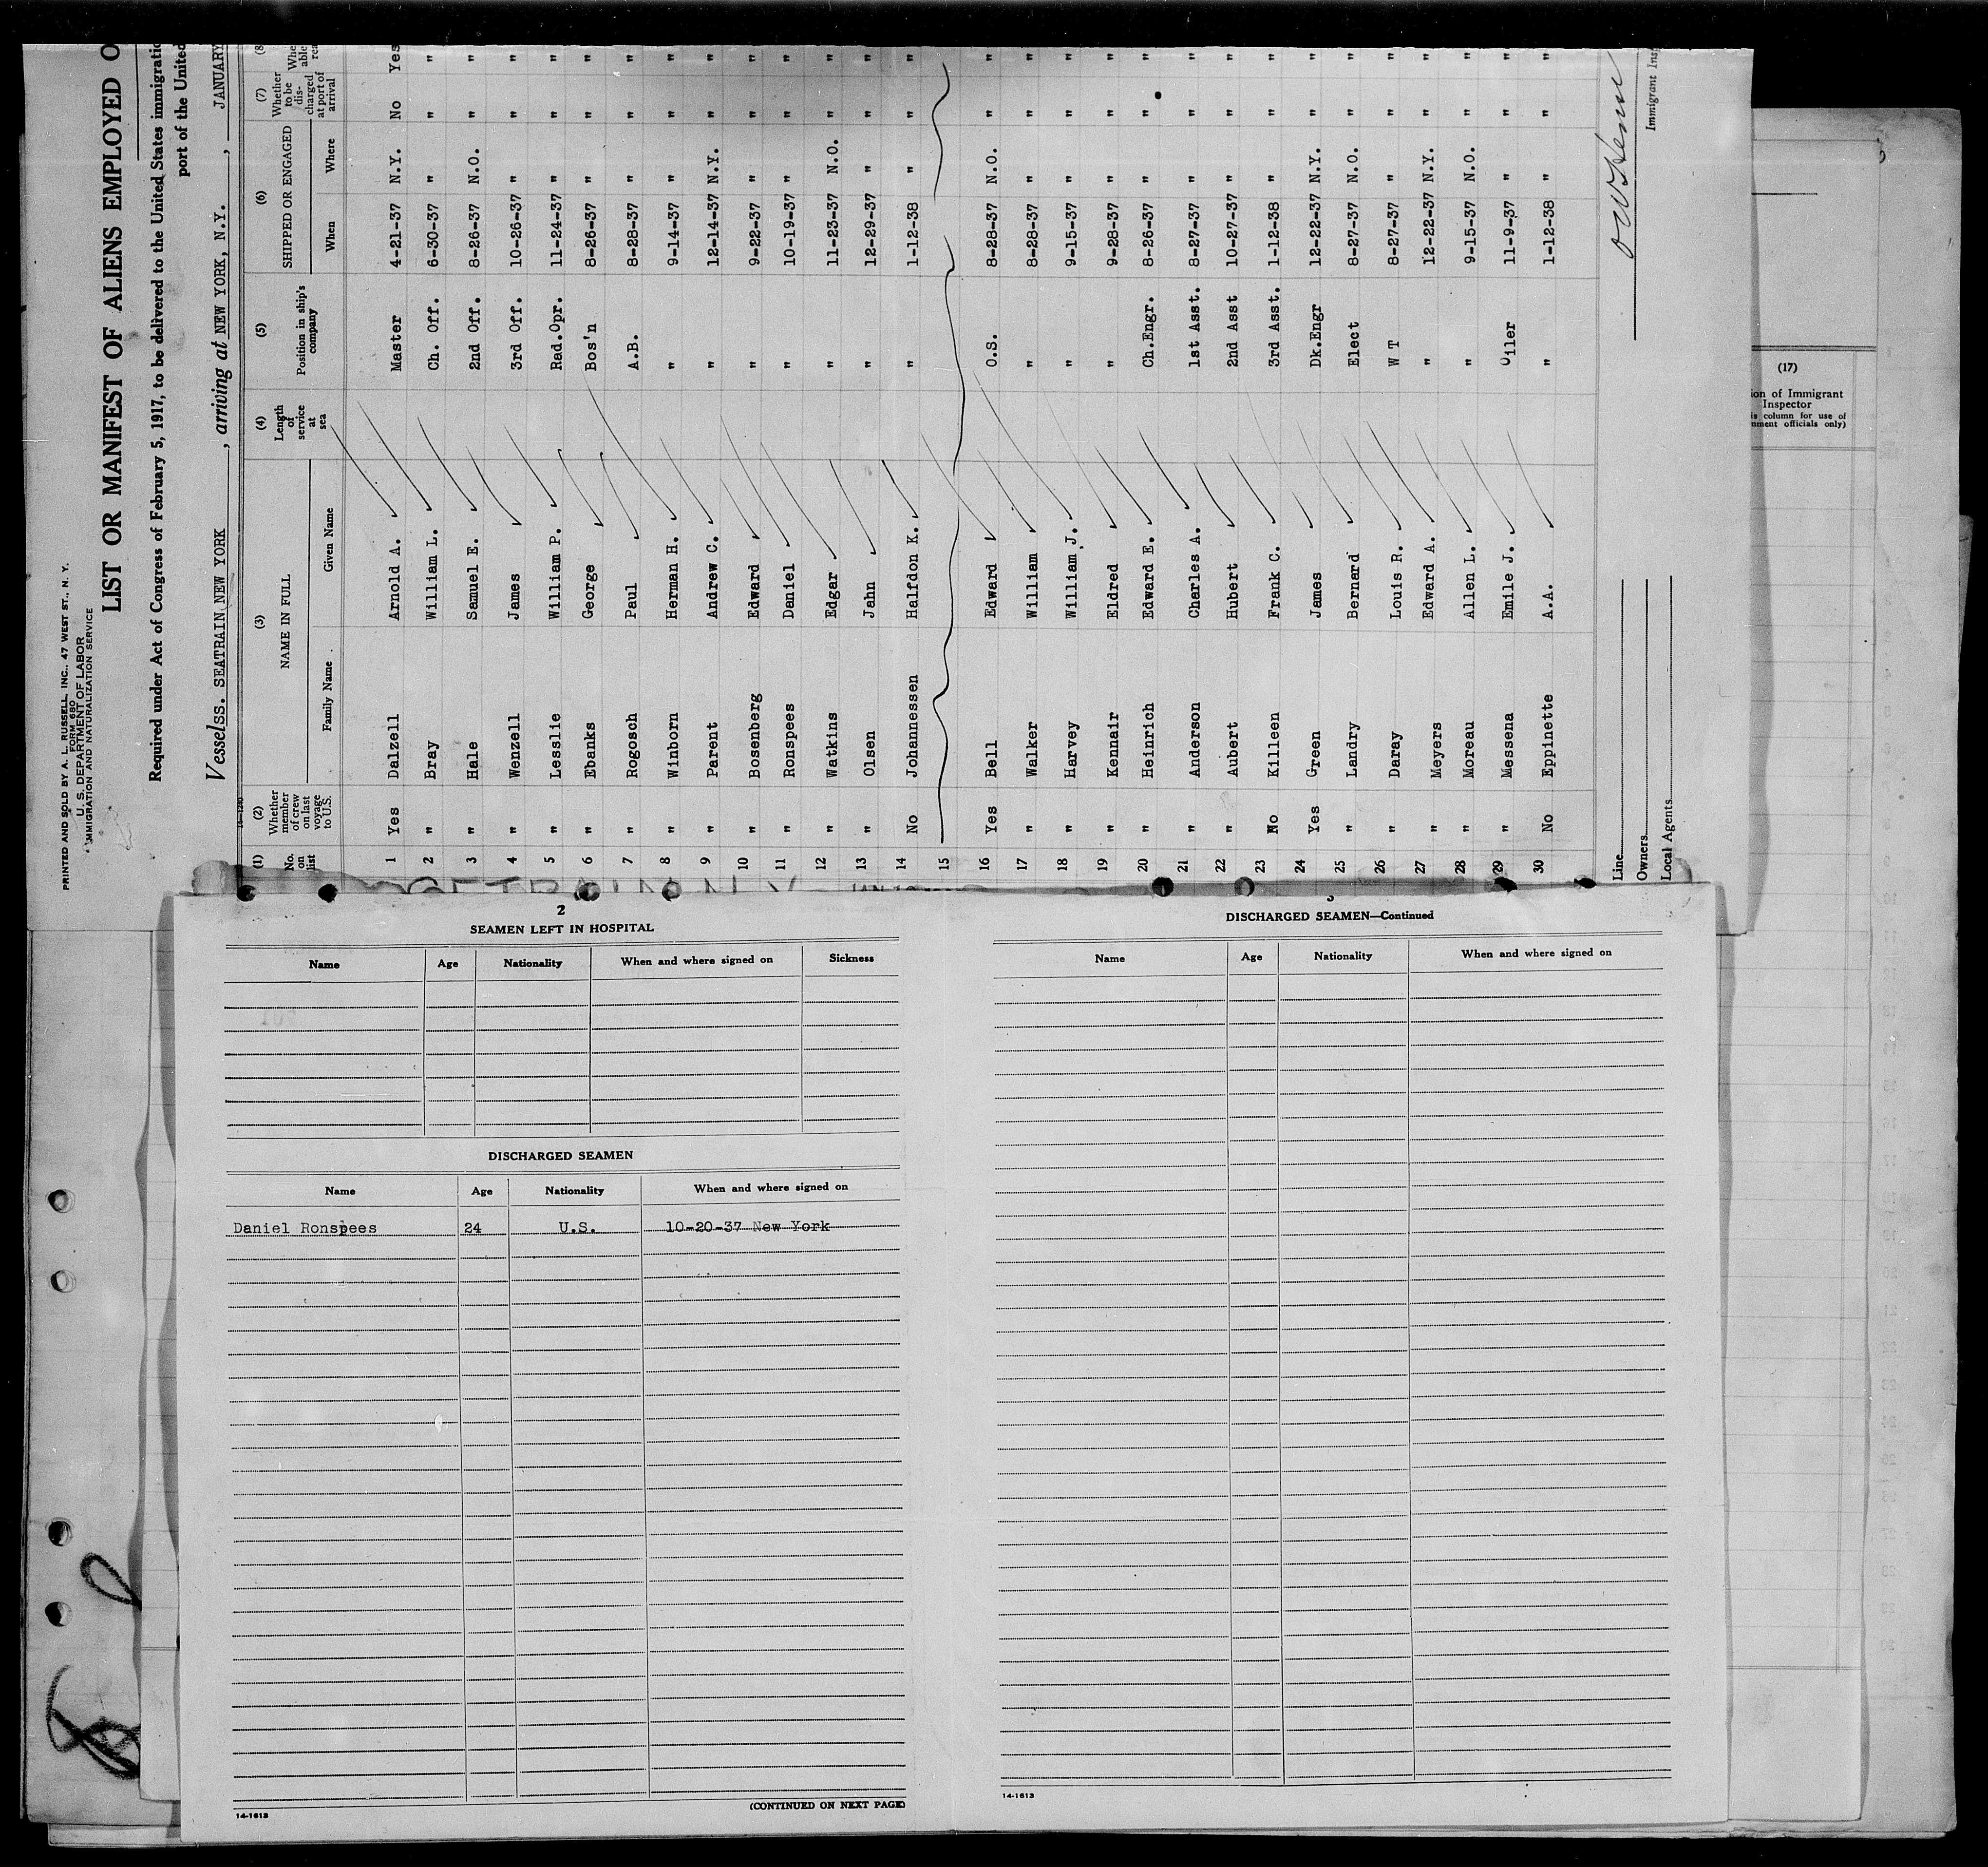 PRINTED AND SOLD BY A. L. RUSSELL, INC., 47 WEST ST., N. Y.
FORM 680
U. S. DEPARTMENT OF LABOR
IMMIGRATION AND NATURALIZATION SERVICE
LIST OR MANIFEST OF ALIENS EMPLOYED O
Required under Act of Congress of February 5, 1917, to be delivered to the United States immigratio
port of the United
Vessel SS. SEATRAIN NEW YORK, arriving at NEW YORK, N.Y., JANUARY
(1) No. on list (2) Whether member of crew on last voyage to U.S. (3) NAME IN FULL Family Name Given Name (4) Length of service at sea (5) Position in ship's company (6) SHIPPED OR ENGAGED When Where (7) Whether to be discharged at port of arrival (8
1 Yes Dalzell Arnold A. Master 4-21-37 N.Y. No Yes
2 " Bray William L. Ch. Off. 6-30-37 " " "
3 " Hale Samuel E. 2nd Off. 8-26-37 N.O. " "
4 " Wenzell James 3rd Off. 10-26-37 " " "
5 " Lesslie William P. Rad.Opr. 11-24-37 " " "
6 " Ebanks George Bos'n 8-26-37 " " "
7 " Rogosch Paul A.B. 8-28-37 " " "
8 " Winborn Herman H. " 9-14-37 " " "
9 " Parent Andrew C. " 12-14-37 N.Y. " "
10 " Bosenberg Edward " 9-22-37 " " "
11 " Ronspees Daniel " 10-19-37 " " "
12 " Watkins Edgar " 11-23-37 N.O. " "
13 " Olsen Jahn " 12-29-37 " " "
14 No Johannessen Halfdon K. " 1-12-38 " " "
15
16 Yes Bell Edward O.S. 8-28-37 N.O. " "
17 " Walker William " 8-28-37 " " "
18 " Harvey William J. " 9-15-37 " " "
19 " Kennair Eldred " 9-28-37 " " "
20 " Heinrich Edward E. Ch.Engr. 8-26-37 " " "
21 " Anderson Charles A. 1st Asst. 8-27-37 " " "
22 " Aubert Hubert 2nd Asst 10-27-37 " " "
23 No Killeen Frank C. 3rd Asst. 1-12-38 " " "
24 Yes Green James Dk.Engr 12-22-37 N.Y. " "
25 " Landry Bernard Elect 8-27-37 N.O. " "
26 " Daray Louis R. W T 8-27-37 " " "
27 " Meyers Edward A. " 12-22-37 N.Y. " "
28 " Moreau Allen L. " 9-15-37 N.O. " "
29 " Messena Emile J. Oiler 11-9-37 " " "
30 No Eppinette A.A. " 1-12-38 " " "
Line
Owners
Local Agents
Immigrant Insp
(17)
ion of Immigrant
Inspector
is column for use of
nment officials only)
2
SEAMEN LEFT IN HOSPITAL
Name Age Nationality When and where signed on Sickness
DISCHARGED SEAMEN
Name Age Nationality When and where signed on
Daniel Ronspees 24 U.S. 10-20-37 New York
14-1613
(CONTINUED ON NEXT PAGE)
3
DISCHARGED SEAMEN—Continued
Name Age Nationality When and where signed on
14-1613